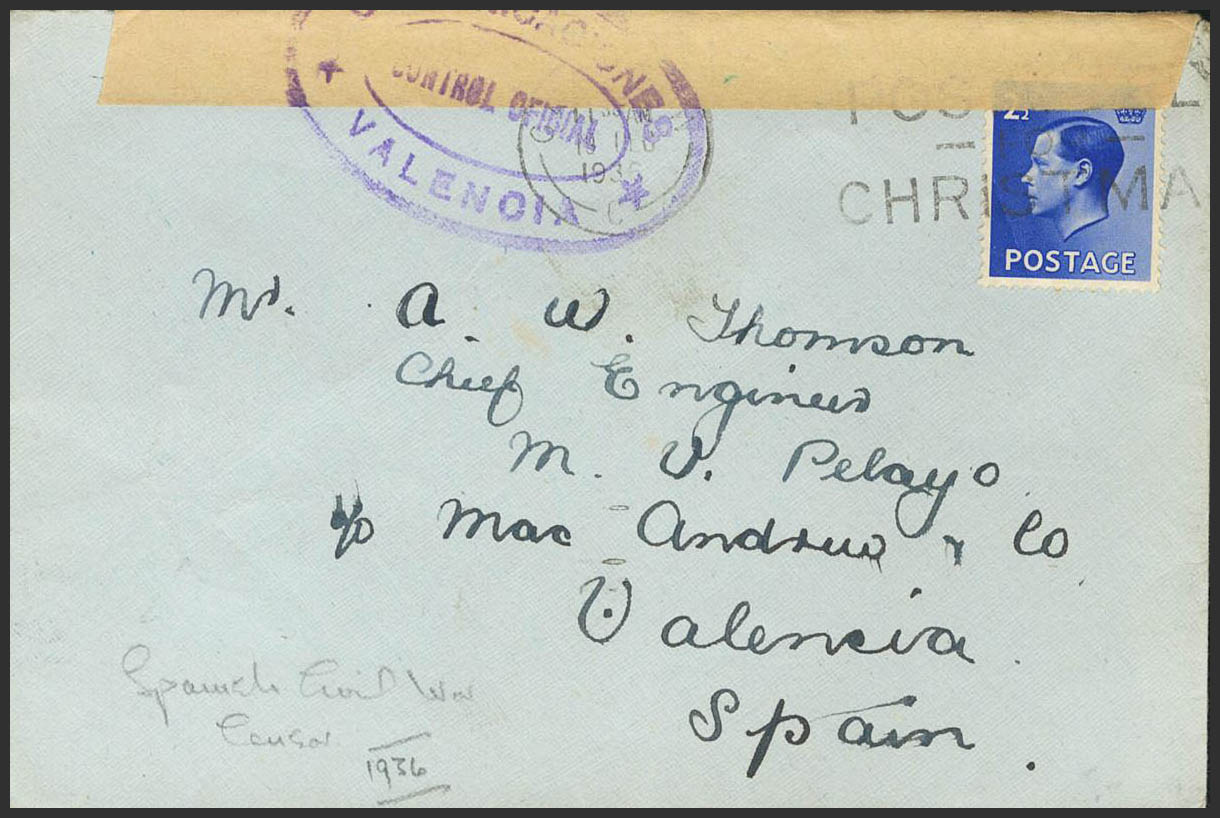 CONTROL OFICIAL
VALENCIA
1936
POS
CHRISTMA
2½
POSTAGE
Mr. A. W. Thomson
Chief Engineer
M. V. Pelayo
c/o Mac Andrew & Co
Valencia.
Spain.
Spanish Civil War
Censor
1936